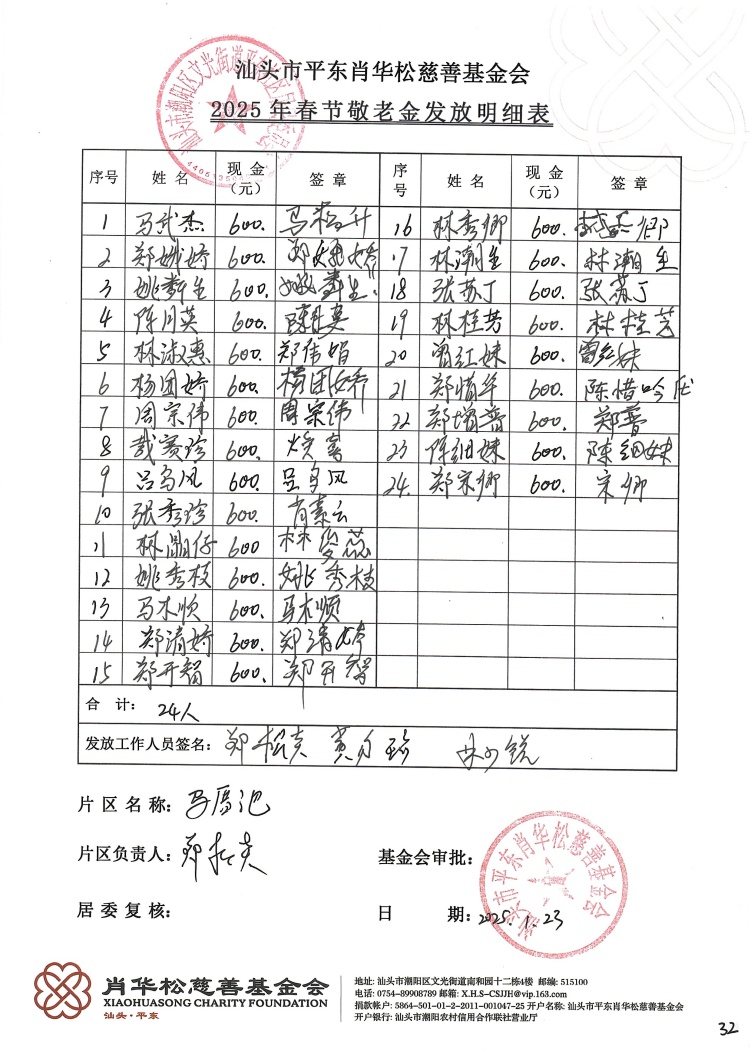 汕头市平东肖华松慈善基金会
2025年春节敬老金发放明细表
序号 姓名 现金（元） 签章 序号 姓名 现金（元） 签章
1 马武杰 600. 16 林秀卿 600.
2 郑娥娇 600. 17 林潮生 600. 林潮生
3 姚舜生 600. 姚舜生 18 张苏丁 600. 张苏丁
4 陈月英 600. 陈月英 19 林桂芳 600. 林桂芳
5 林淑惠 600. 郑伟娟 20 曾红妹 600. 曾红妹
6 杨团娇 600. 杨团娇 21 郑惜华 600. 陈惜吟代
7 周宗伟 600. 周宗伟 22 郑增普 600. 郑普
8 600. 23 陈细妹 600. 陈细妹
9 吕乌凤 600. 吕乌凤 24. 郑宋卿 600. 宋卿
10 张秀珍 600. 肖素云
11 600 林俊蕊
12 姚秀枝 600. 姚秀枝
13 马木顺 600. 马木顺
14 郑清娇 600. 郑清娇
15 郑开智 600. 郑开智
合计： 24人
发放工作人员签名：
片区名称：
片区负责人：
基金会审批：
居委复核：
日期：2025.1.23
汕头市平东肖华松慈善基金会
肖华松慈善基金会
XIAOHUASONG CHARITY FOUNDATION
汕头·平东
地址: 汕头市潮阳区文光街道南和园十二栋4楼 邮编: 515100
电话: 0754-89908789 邮箱: X.H.S-CSJJH@vip.163.com
捐款帐户: 5864-501-01-2-2011-001047-25 开户名称: 汕头市平东肖华松慈善基金会
开户银行: 汕头市潮阳农村信用合作联社营业厅
32